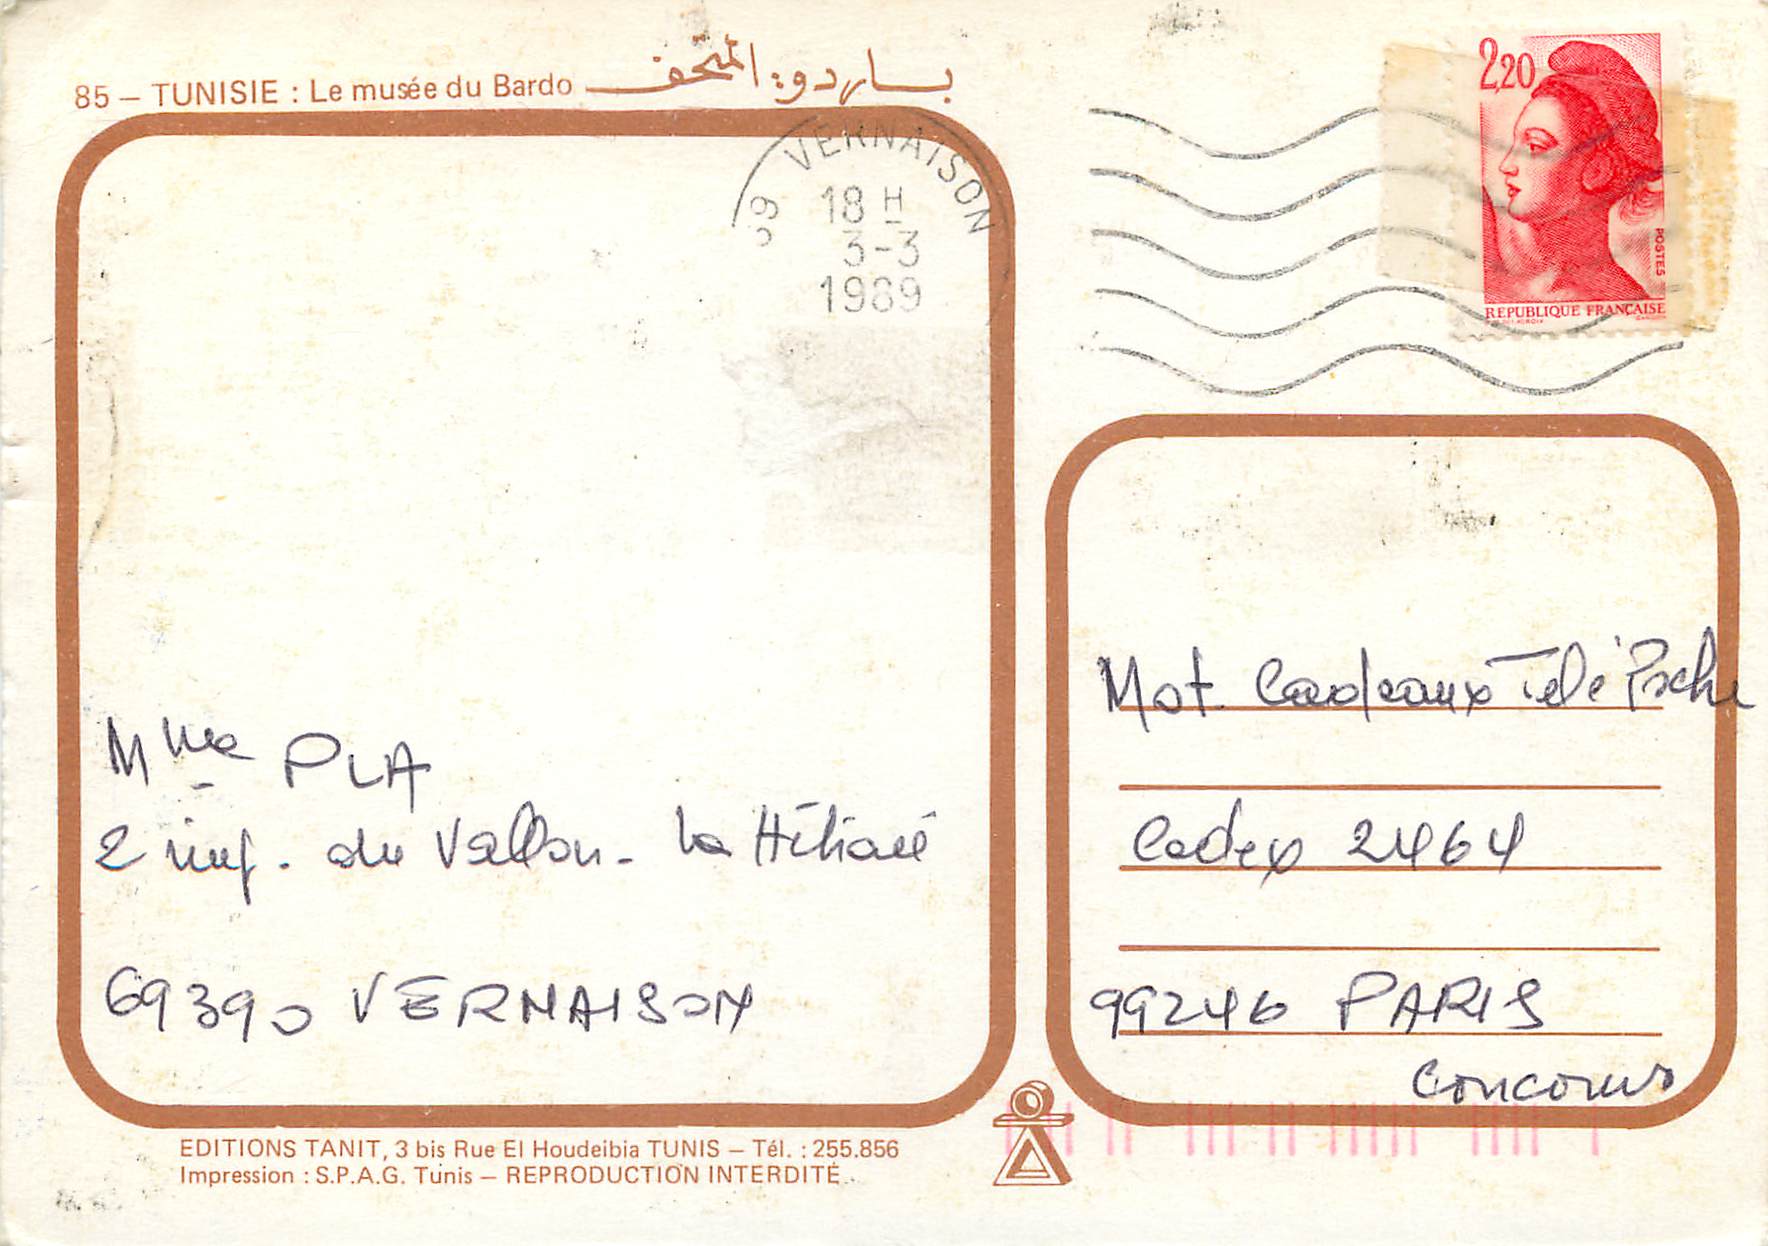 85 – TUNISIE : Le musée du Bardo باردو: المتحف
69 VERNAISON
18 H
3-3
1989
2,20
POSTES
REPUBLIQUE FRANÇAISE
Mme PLA
2 imp. du Vallon - La
69390 VERNAISON
Mot Cadeaux Télé Poche
Cedex 2464
99246 PARIS
Concours
EDITIONS TANIT, 3 bis Rue El Houdeibia TUNIS – Tél. : 255.856
Impression : S.P.A.G. Tunis – REPRODUCTION INTERDITE